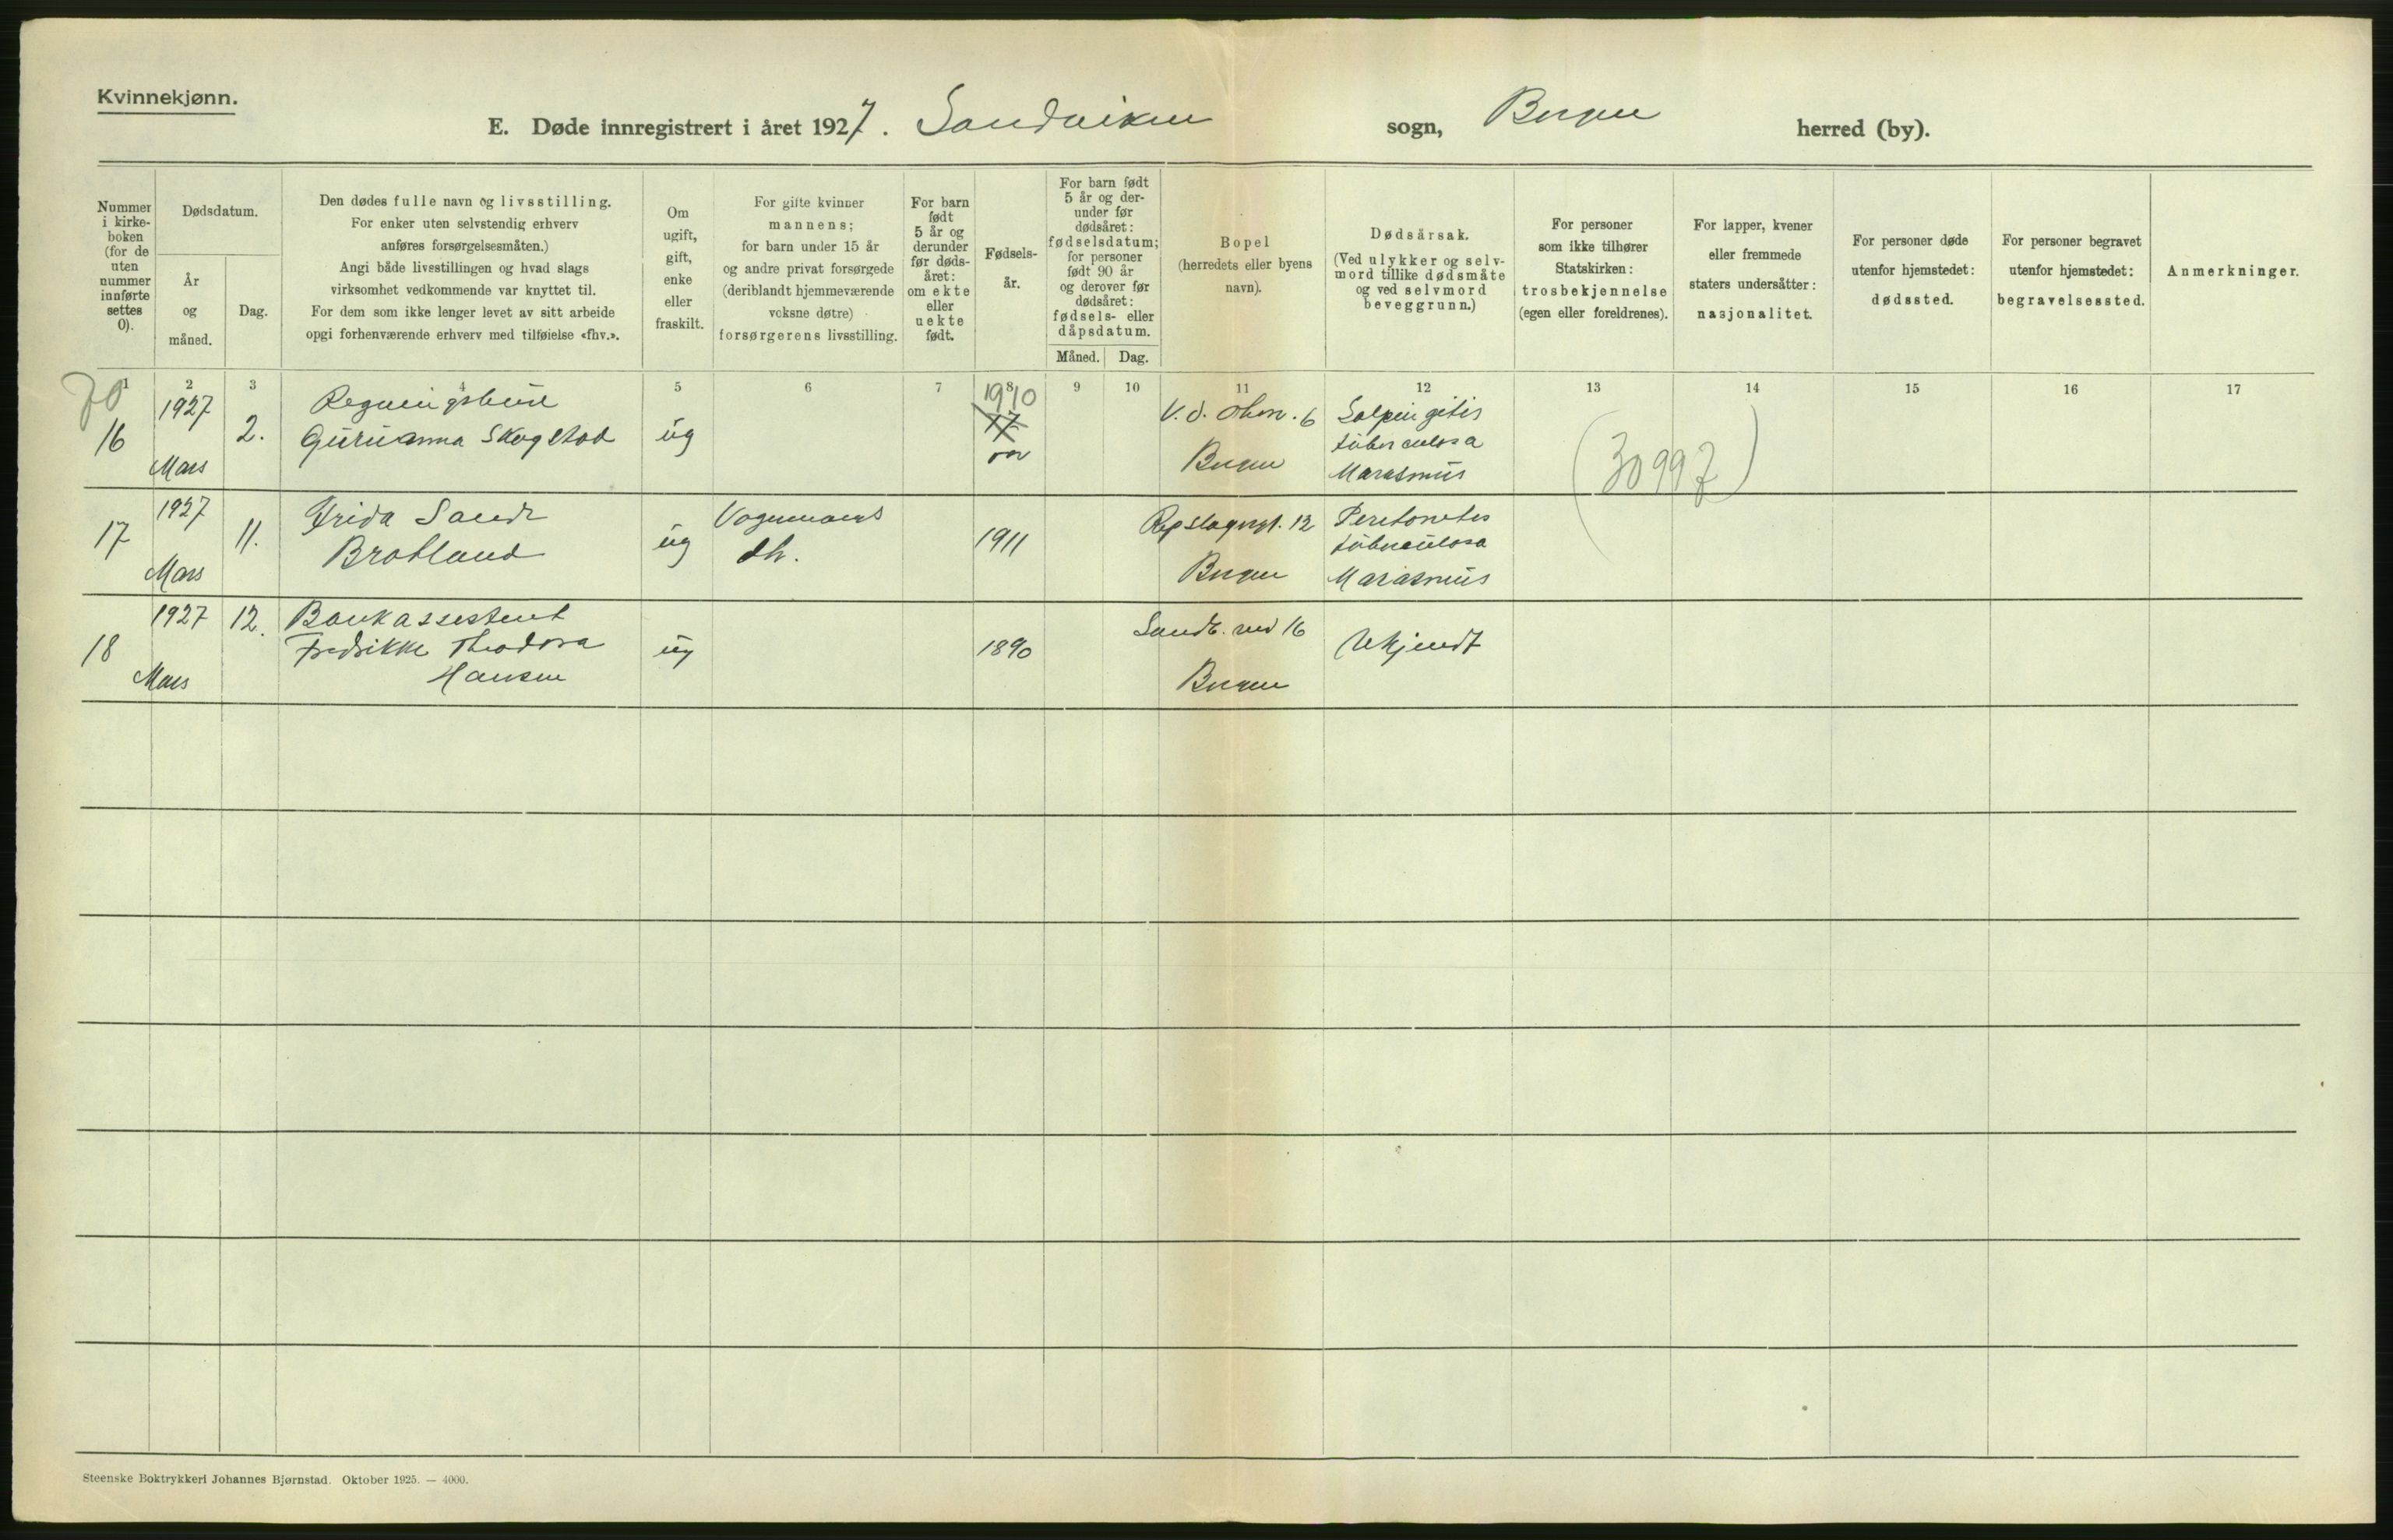 Kvinnekjønn.
E. Døde innregistrert i året 1927. Sandviken sogn, Bergen herred (by).
Nummer
i kirke-
boken
(for de
uten
nummer
innførte
settes
0).
Dødsdatum.
År
og
måned.
Dag.
Den dødes fulle navn og livsstilling.
For enker uten selvstendig erhverv
anføres forsørgelsesmåten.)
Angi både livsstillingen og hvad slags
virksomhet vedkommende var knyttet til.
For dem som ikke lenger levet av sitt arbeide
opgi forhenværende erhverv med tilføielse «fhv.».
Om
ugift,
gift,
enke
eller
fraskilt.
For gifte kvinner
mannens;
for barn under 15 år
og andre privat forsørgede
(deriblandt hjemmeværende
voksne døtre)
forsørgerens livsstilling.
For barn
født
5 år og
derunder
før døds-
året:
om ekte
eller
uekte
født.
Fødsels-
år.
For barn født
5 år og der-
under før
dødsåret:
fødselsdatum;
for personer
født 90 år
og derover før
dødsåret:
fødsels- eller
dåpsdatum.
Måned. Dag.
Bopel
(herredets eller byens
navn).
Dødsårsak.
(Ved ulykker og selv-
mord tillike dødsmåte
og ved selvmord
beveggrunn.)
For personer
som ikke tilhører
Statskirken:
trosbekjennelse
(egen eller foreldrenes).
For lapper, kvener
eller fremmede
staters undersåtter:
nasjonalitet.
For personer døde
utenfor hjemstedet:
dødssted.
For personer begravet
utenfor hjemstedet:
begravelsessted.
Anmerkninger.
1 2 3 4 5 6 7 8 9 10 11 12 13 14 15 16 17
70
16
1927
Mars
2.
Guruanna Skogstad
ug
1910
17
år
6
Bergen
Salpingitis
tuberculosa
Marasmus
(30997)
17
1927
Mars
11.
Frida Sande
Brotland
ug
Vognmands
dh.
1911
Repslagergt. 12
Bergen
Peretonetes
tuberculosa
Marasmus
18
1927
Mars
12.
Bankassestent
Fredrikke Theodora
Hansen
ug
1890
Sandv. vei 16
Bergen
Ukjendt
Steenske Boktrykkeri Johannes Bjørnstad. Oktober 1925. — 4000.